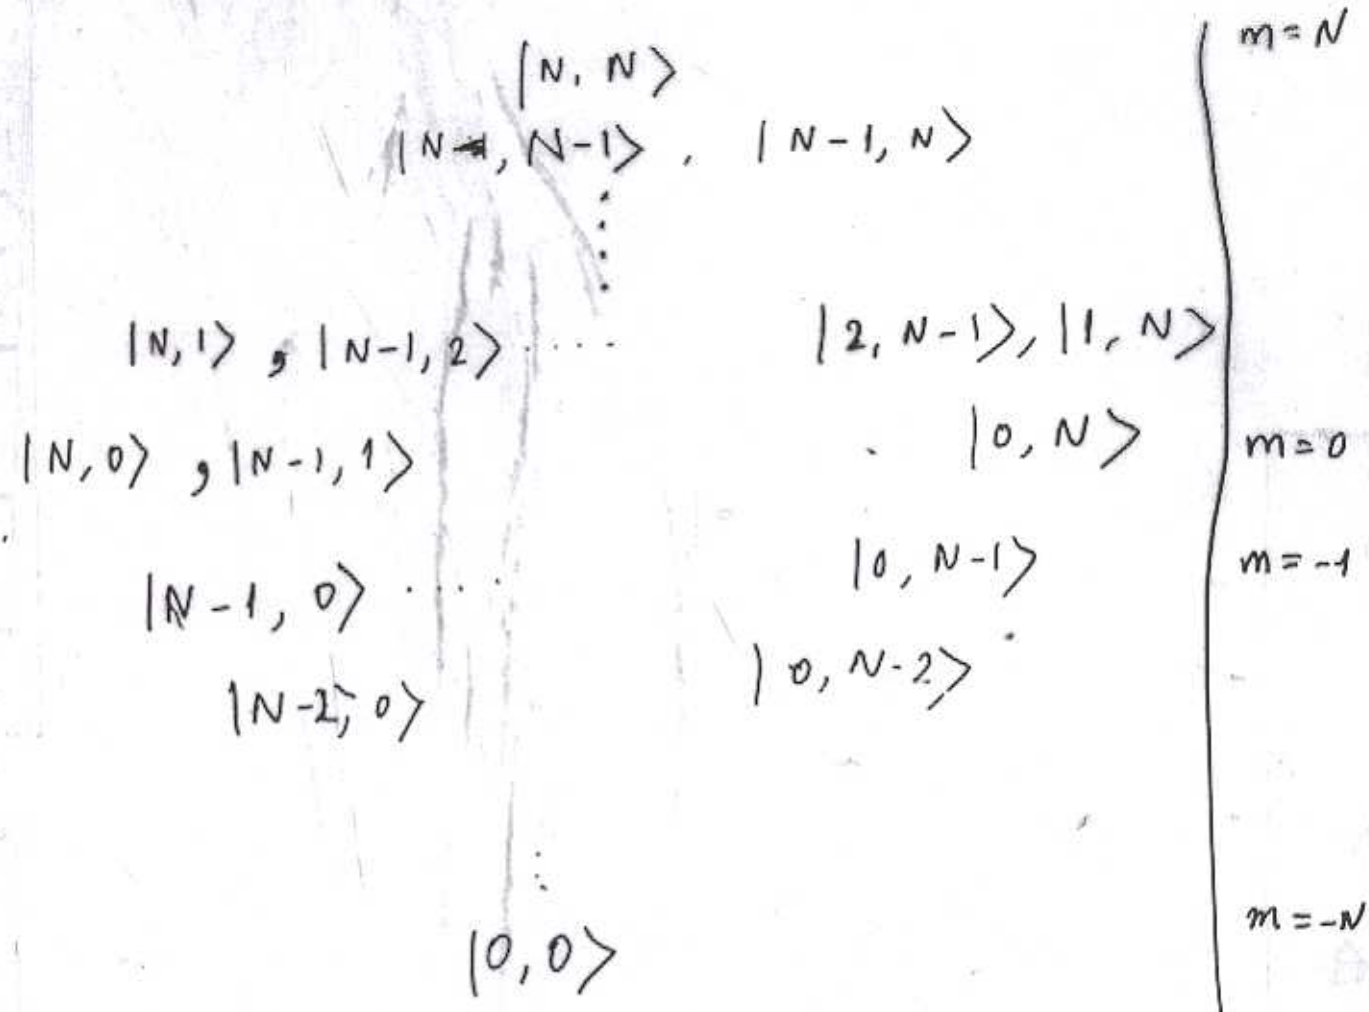 |N, N⟩ m=N
|N, N-1⟩ , |N-1, N⟩
|N,1⟩ , |N-1, 2⟩ ..... |2, N-1⟩, |1, N⟩
|N,0⟩ , |N-1, 1⟩ . |0, N⟩ m=0
|N-1, 0⟩ .... |0, N-1⟩ m=-1
|N-2, 0⟩ |0, N-2⟩
|0,0⟩ m=-N